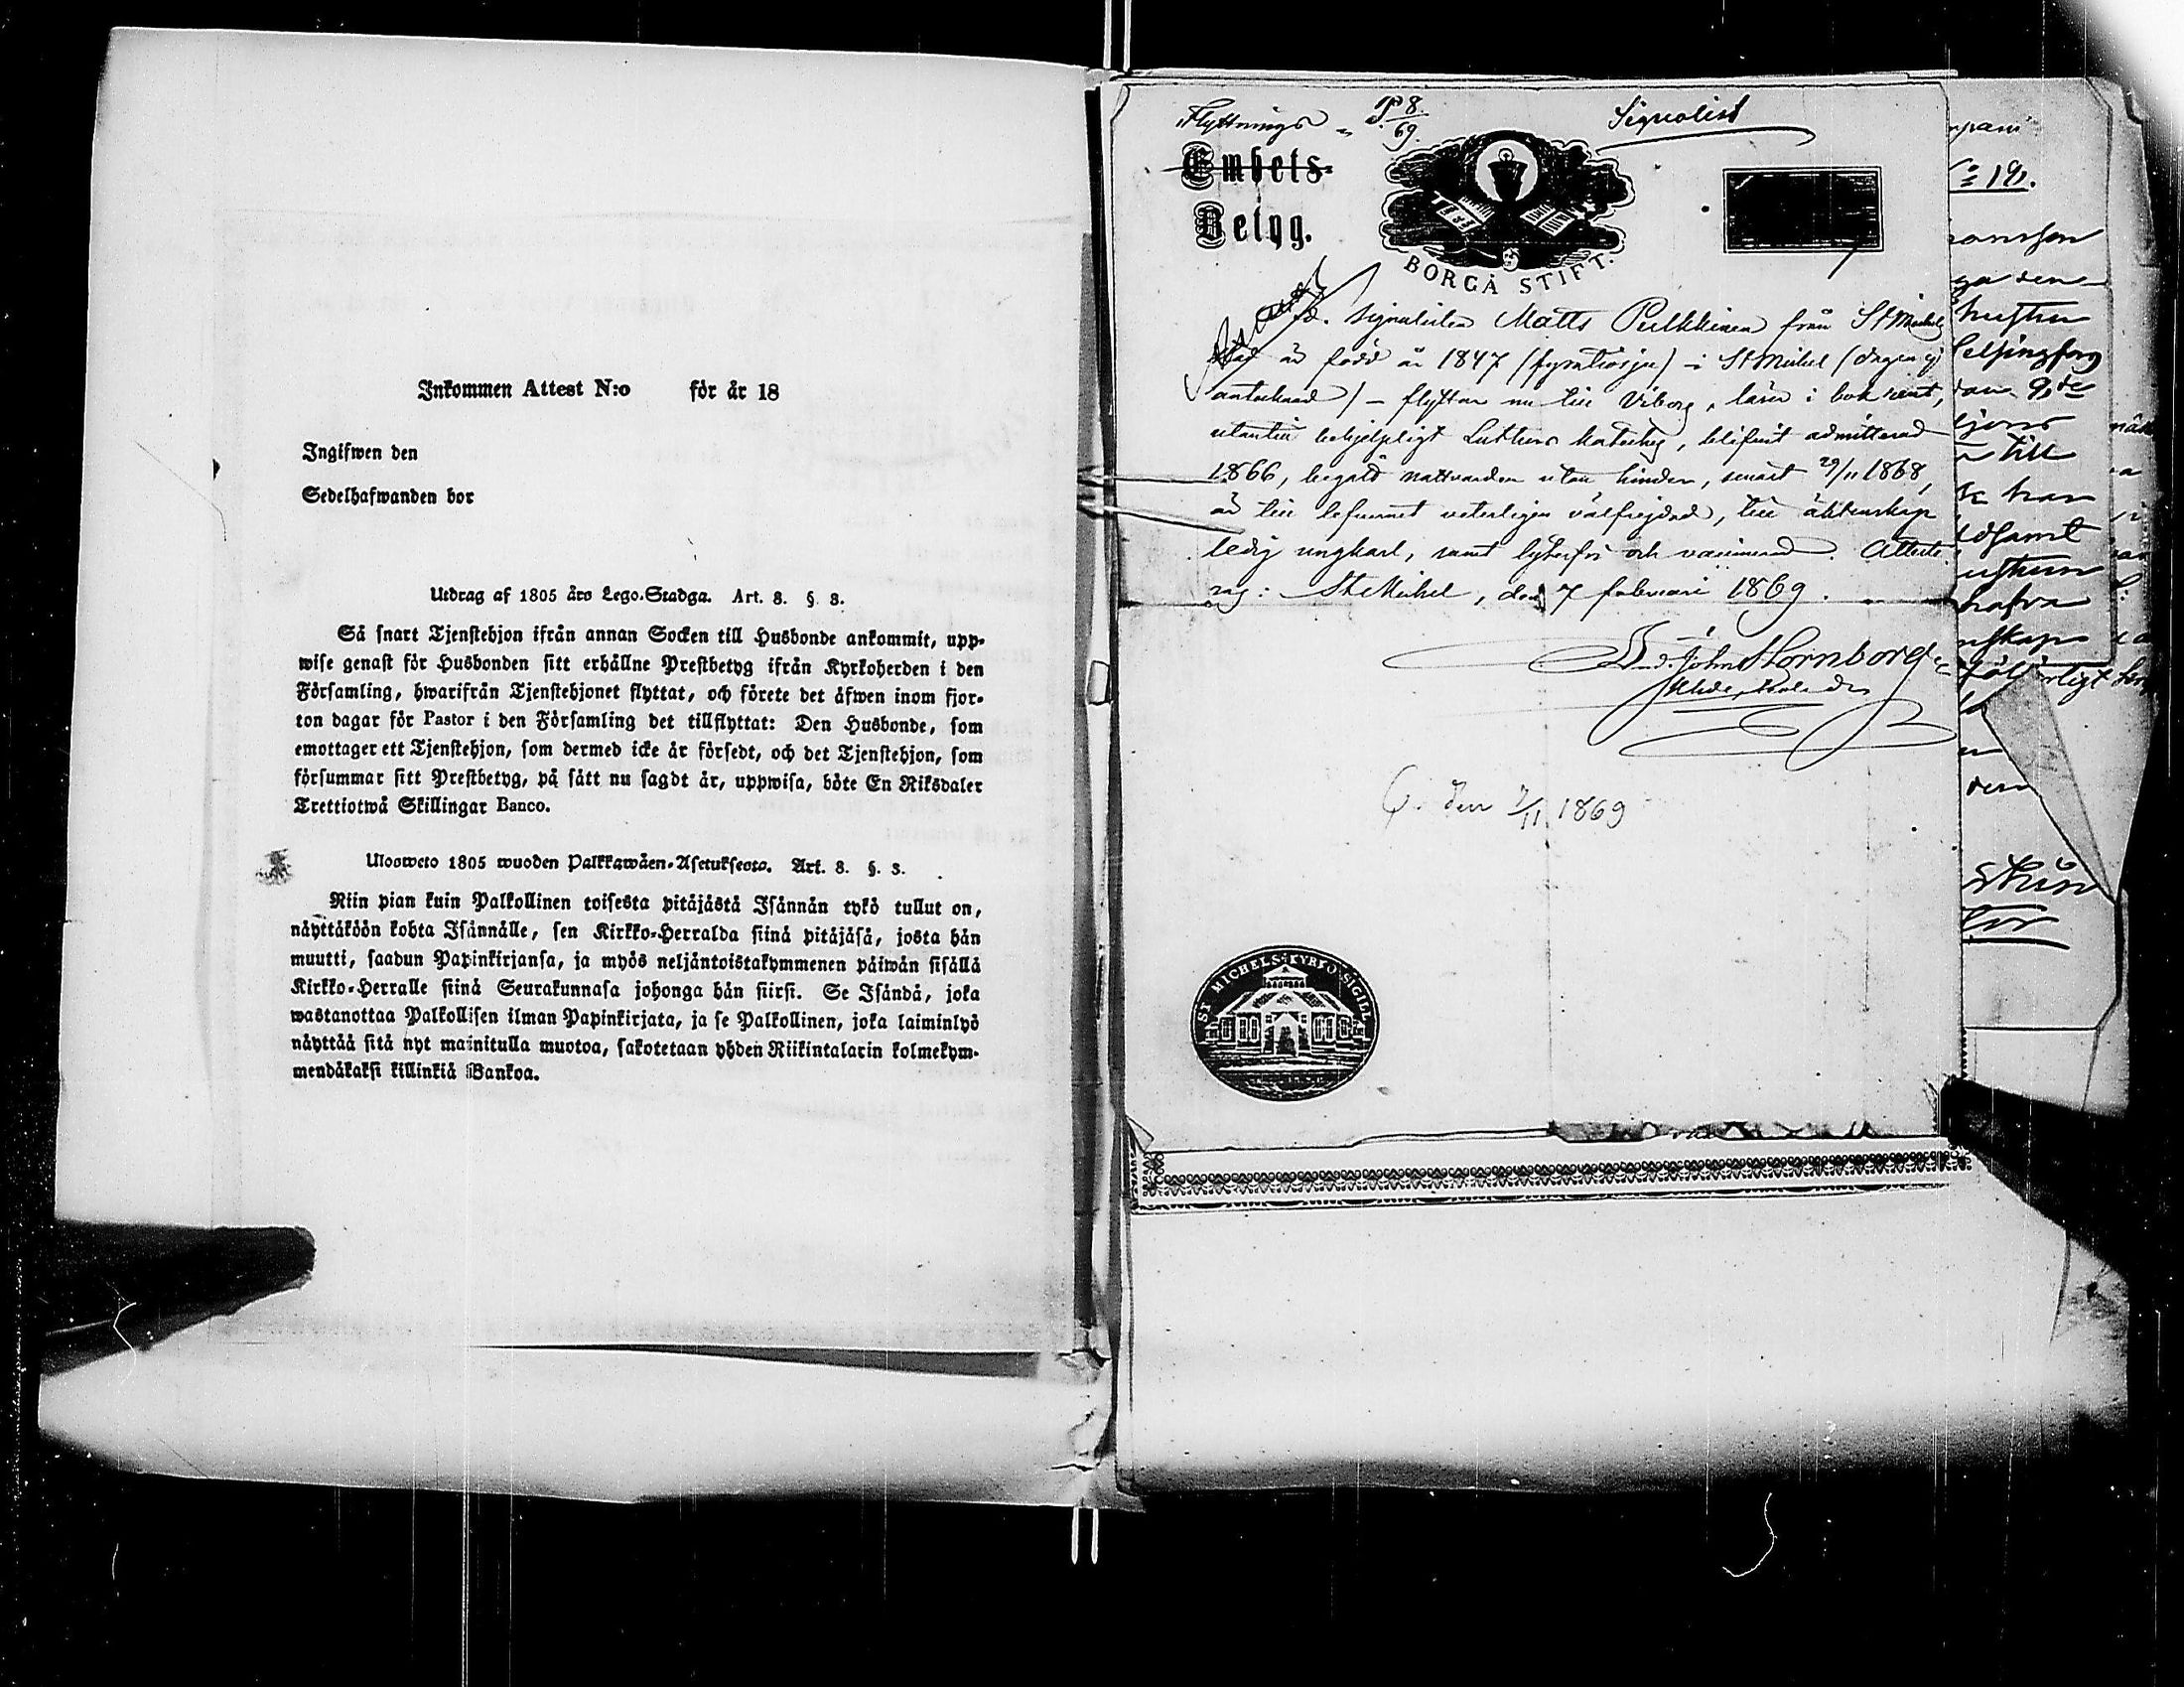 Inkommen Attest N:o för år 18
Ingifwen den
Sedelhafwanden bor
Utdrag af 1805 års Lego-Stadga. Art. 8. §. 3.
Så snart Tjenstehjon ifrån annan Socken till Husbonde ankommit, upp-
wise genast för Husbonden sitt erhållne Prestbetyg ifrån Kyrkoherden i den
Församling, hwarifrån Tjenstehjonet flyttat, och förete det äfwen inom fjor-
ton dagar för Pastor i den Församling det tillflyttat: Den Husbonde, som
emottager ett Tjenstehjon, som dermed icke är försedt, och det Tjenstehjon, som
försummar sitt Prestbetyg, på sätt nu sagdt är, uppwisa, böte En Riksdaler
Trettiotwå Skillingar Banco.
Ulosweto 1805 wuoden Palkkawäen-Asetuksesta. Art. 8. §. 3.
Niin pian kuin Palkollinen toisesta pitäjästä Isännän tykö tullut on,
näyttäköön kohta Isännälle, sen Kirkko-Herralda siinä pitäjäsä, josta hän
muutti, saadun Papinkirjansa, ja myös neljäntoistakymmenen päiwän sisällä
Kirkko-Herralle siinä Seurakunnasa johonga hän siirsi. Se Isändä, joka
wastanottaa Palkollisen ilman Papinkirjata, ja se Palkollinen, joka laiminlyö
näyttää sitä nyt mainitulla muotoa, sakotetaan yhden Riikintalarin kolmekym-
mendäkaksi killinkiä Bankoa.
Flyttnings- P. 8/69. Signalist
Embets-
Betyg.
BORGÅ STIFT.
F.d. Signalisten Matts Pulkkinen från St Michels
stad är född år 1847 (fyratiosju) i St Michel (dagen ej
antecknad) – flyttar nu till Viborg, läser i bok rent,
utantill behjelpligt Luthers kateches, blifvit admitterad
1866, begått nattvarden utan hinder, senast 29/11 1868,
är till lefvernet veterligen välfrejdad, till äktenskap
ledig ungkarl, samt lyterfri och vaccinerad. Atteste-
ras: St Michel, den 7 februari 1869.
John Hornborg
den 7/11 1869
ST MICHELS KYRKO SIGILL
hustru
Helsingfors
till
har
den